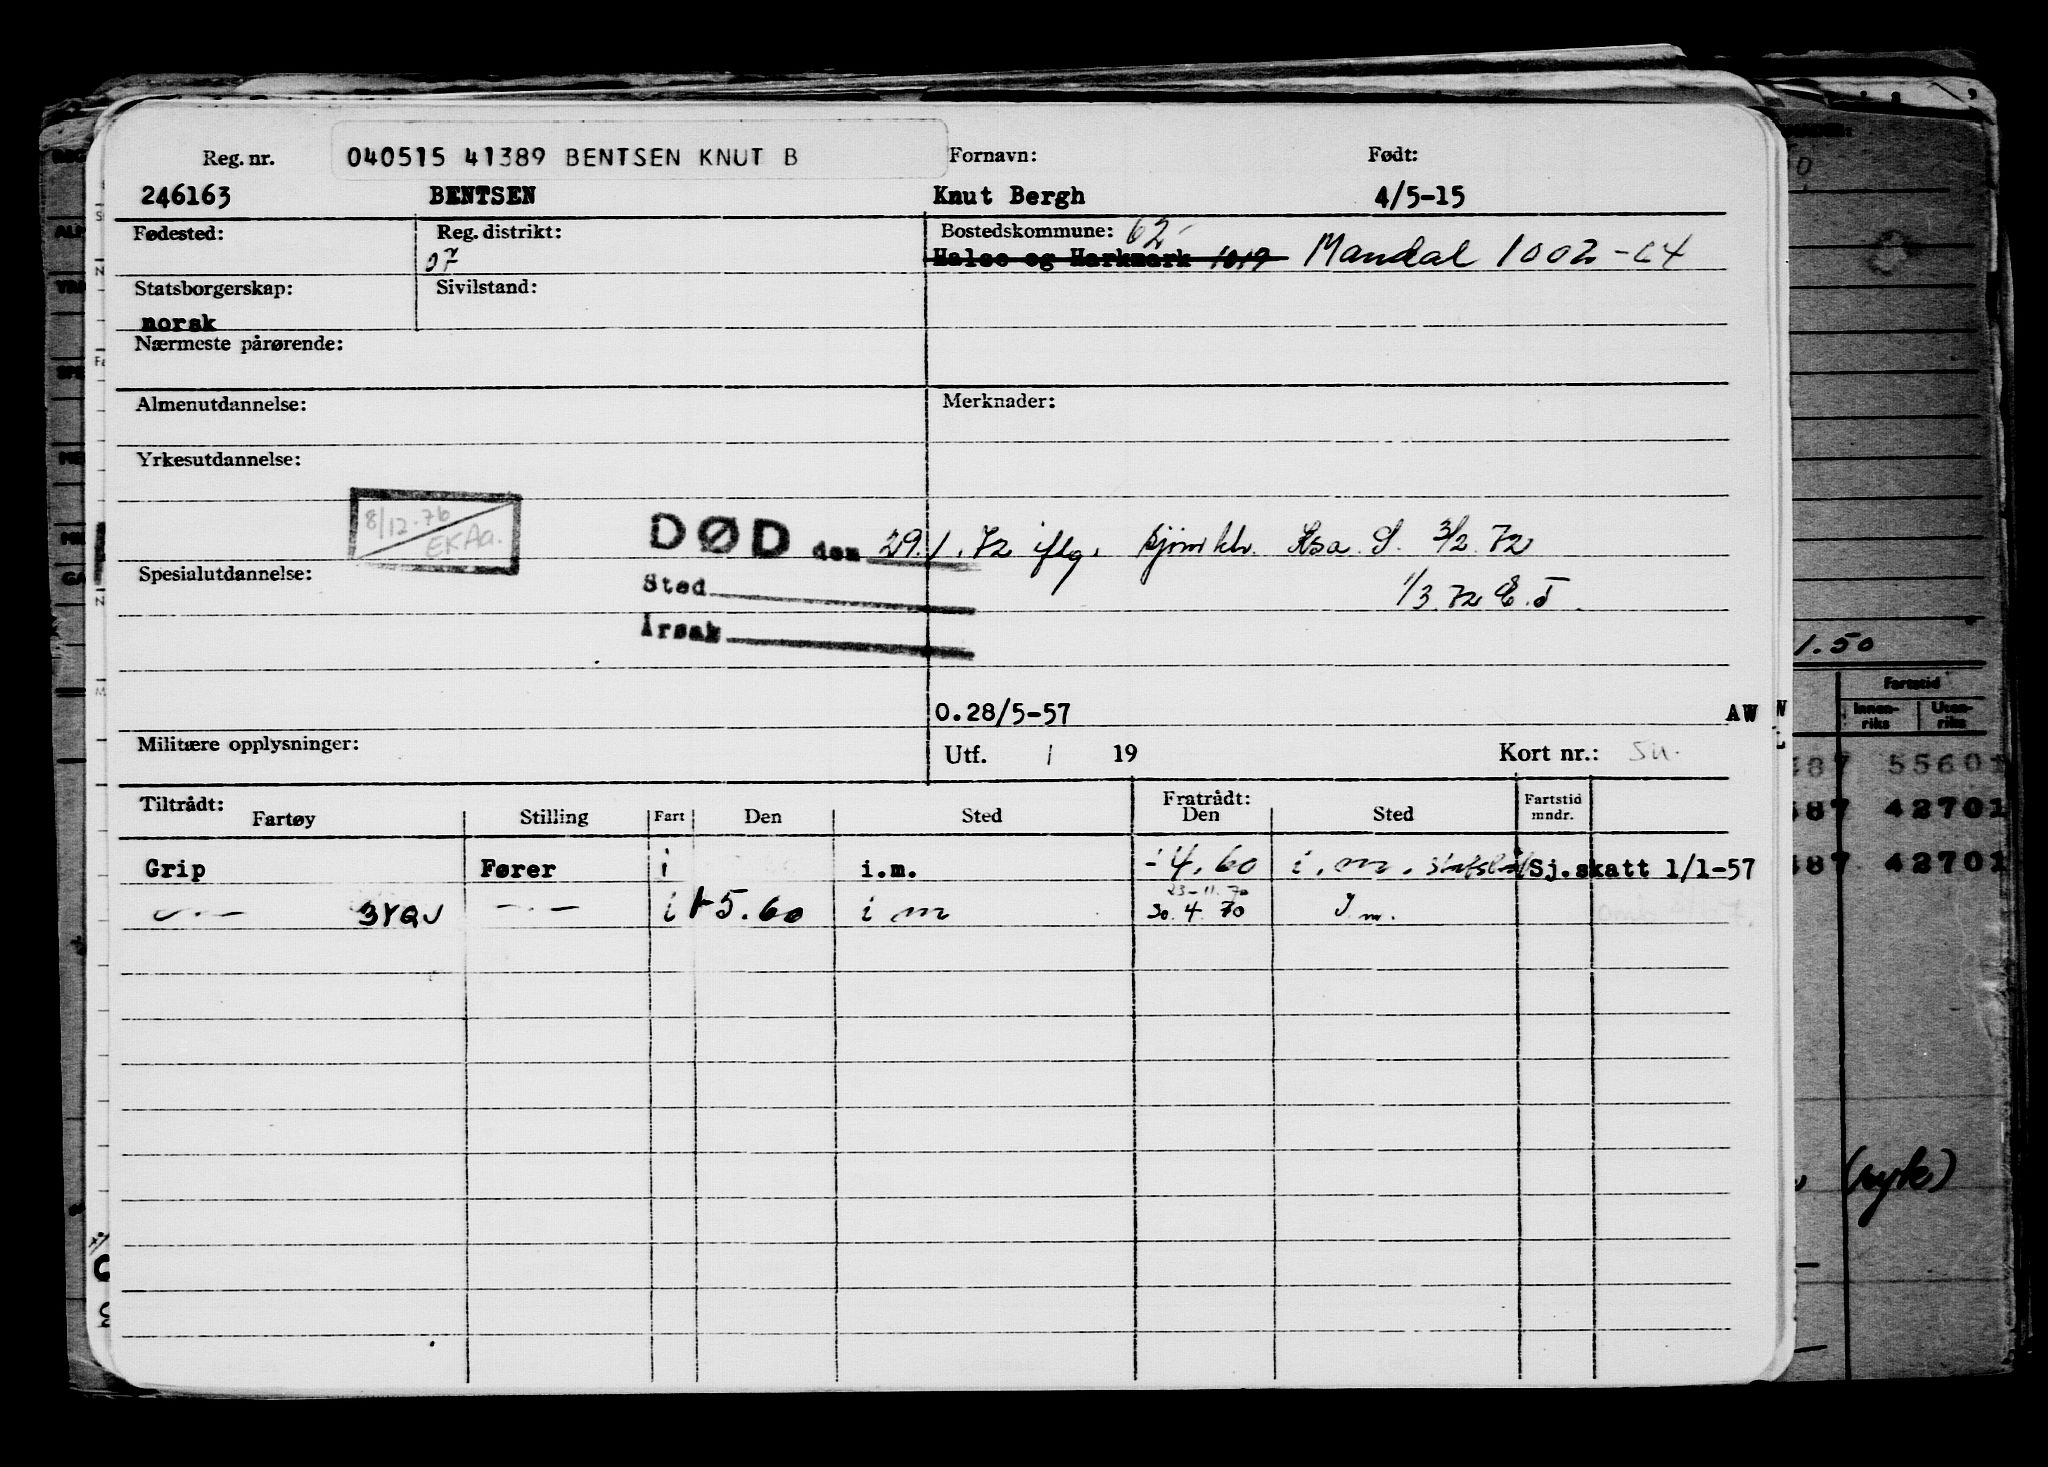 Reg. nr. 040515 41389 BENTSEN KNUT B Fornavn: Født:
246163 BENTSEN Knut Bergh 4/5-15
Fødested: Reg. distrikt: Bostedskommune: 62
07 Halse og Harkmark 1019 Mandal 1002-64
Statsborgerskap: Sivilstand:
norsk
Nærmeste pårørende:
Almenutdannelse: Merknader:
Yrkesutdannelse:
8/12-76
EKAa.
DØD den 29.1.72 iflg. Ksa. S. 3/2.72
Spesialutdannelse: Sted 1/3.72 E.T.
Årsak
0.28/5-57 AW
Militære opplysninger: Utf. / 19 Kort nr.:
Tiltrådt: Fratrådt:
Fartøy Stilling Fart Den Sted Den Sted Fartstid mndr.
Grip Fører i i.m. -4.60 i.m. Sj.skatt 1/1-57
23-11.70
3YQJ i 5.60 i m 30.4.70 I m.
1.50
Fartstid
Innen-riks Uten-riks
487 55601
487 42701
487 42701
(syk)